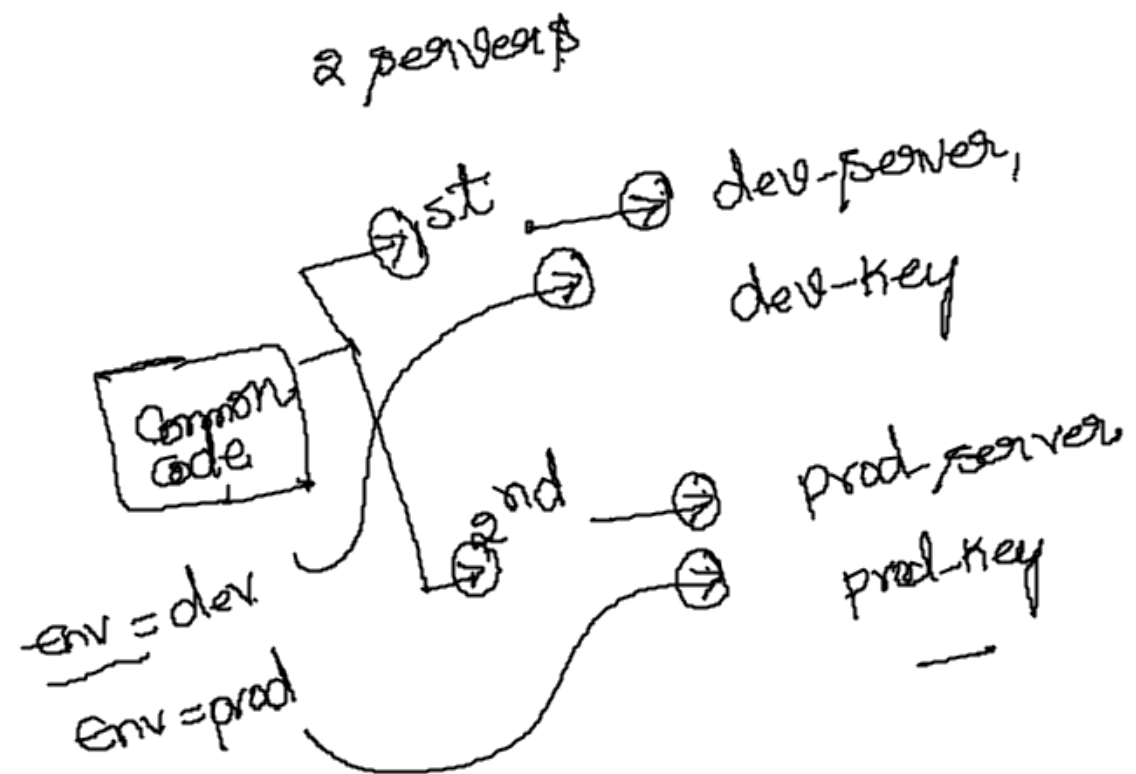 2 servers
1st
dev-server,
dev-key
Common
code
2nd
prod-server
prod-key
env = dev
Env = prod